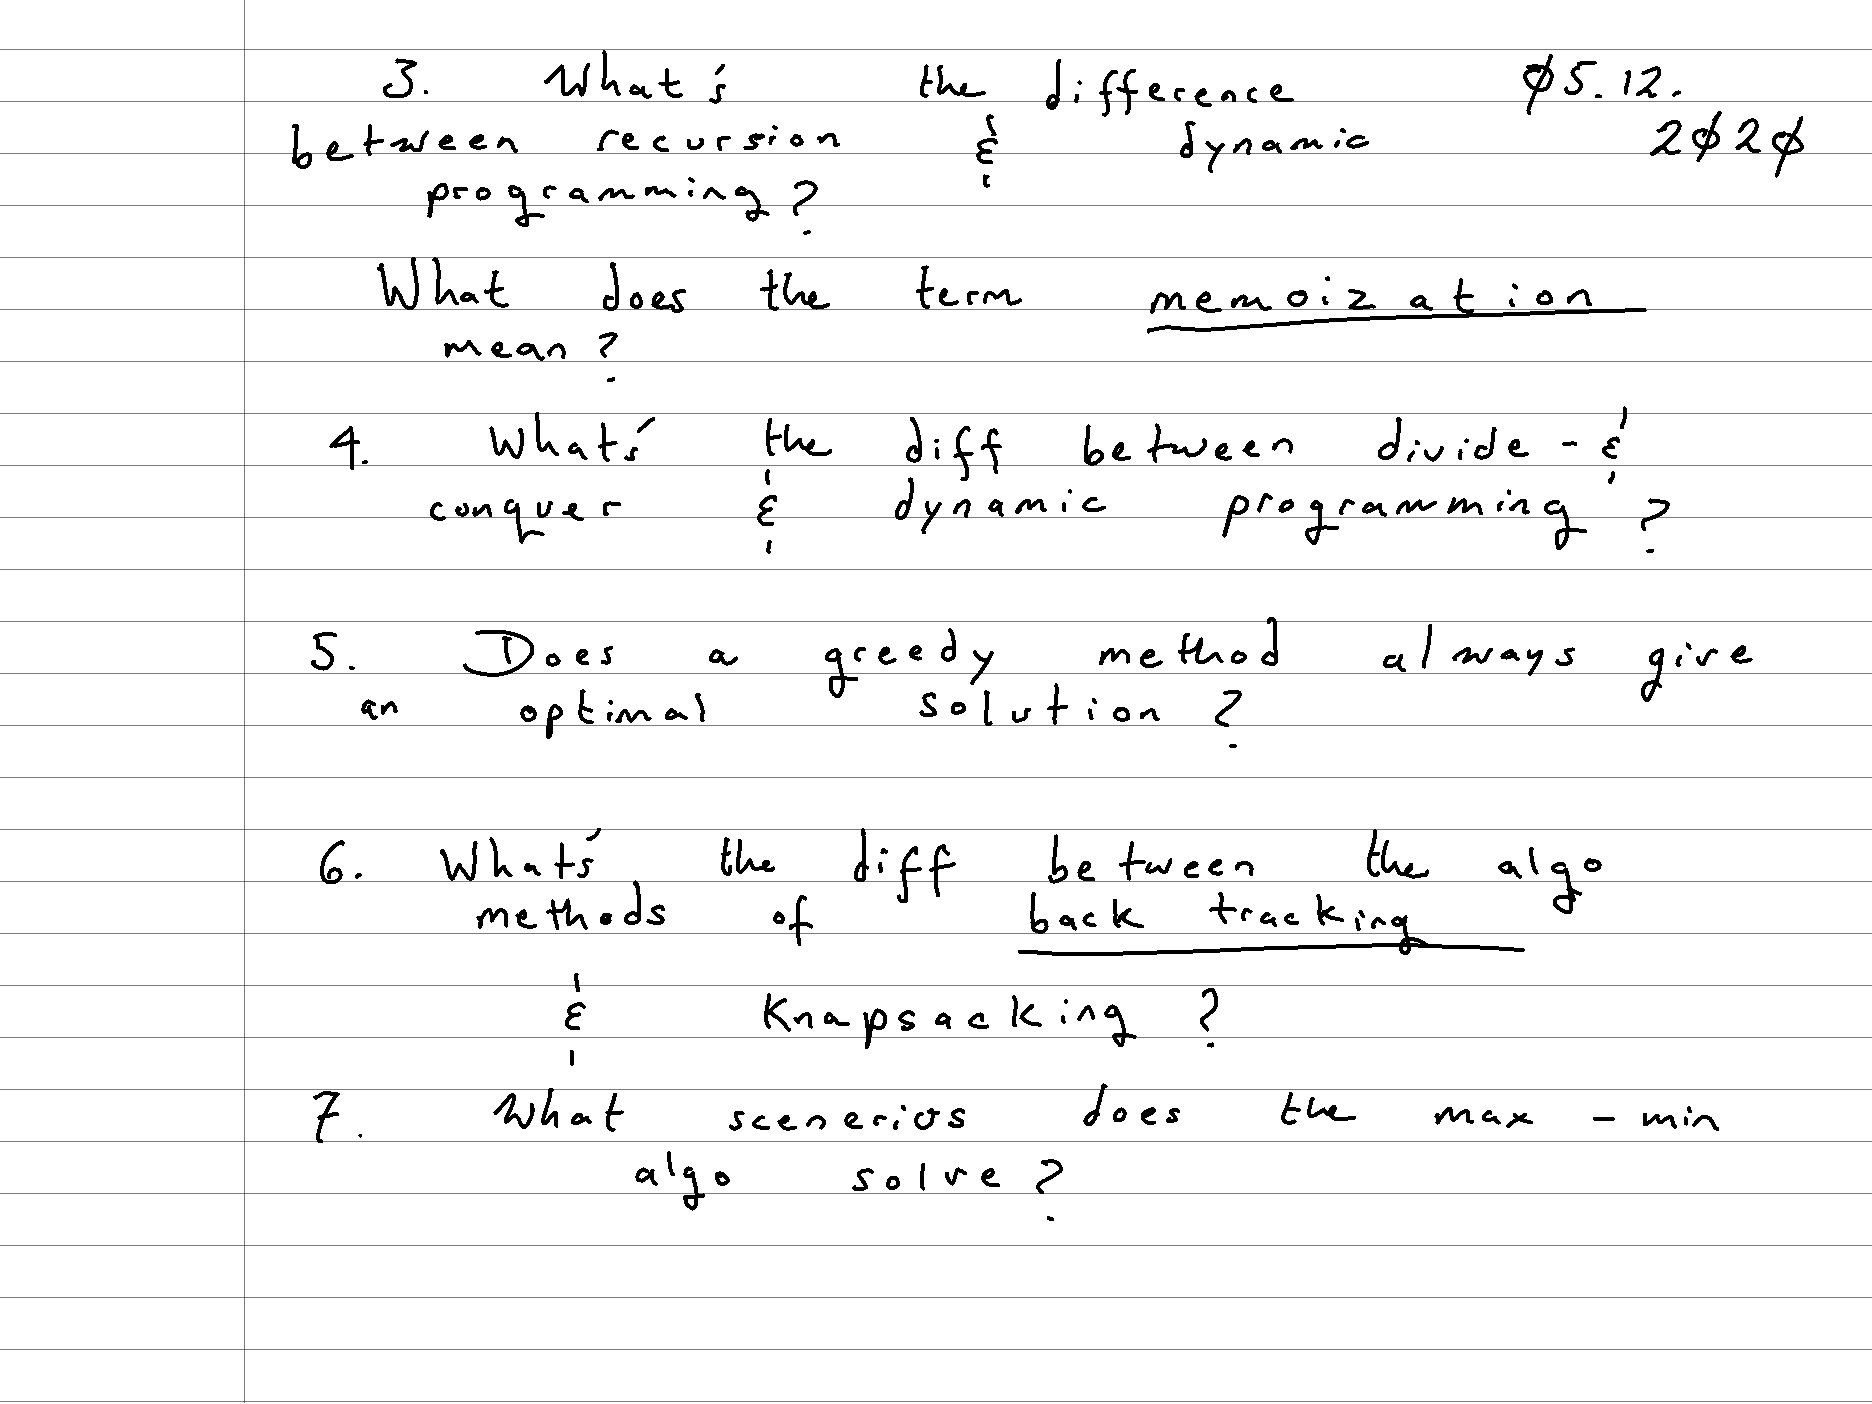 3. What's the difference ∅5.12.
between recursion & dynamic 2∅2∅
programming?
What does the term memoization
mean?
4. What's the diff between divide-&
conquer & dynamic programming?
5. Does a greedy method always give
an optimal solution?
6. What's the diff between the algo
methods of back tracking
& Knapsacking?
7. What scenerios does the max-min
algo solve?